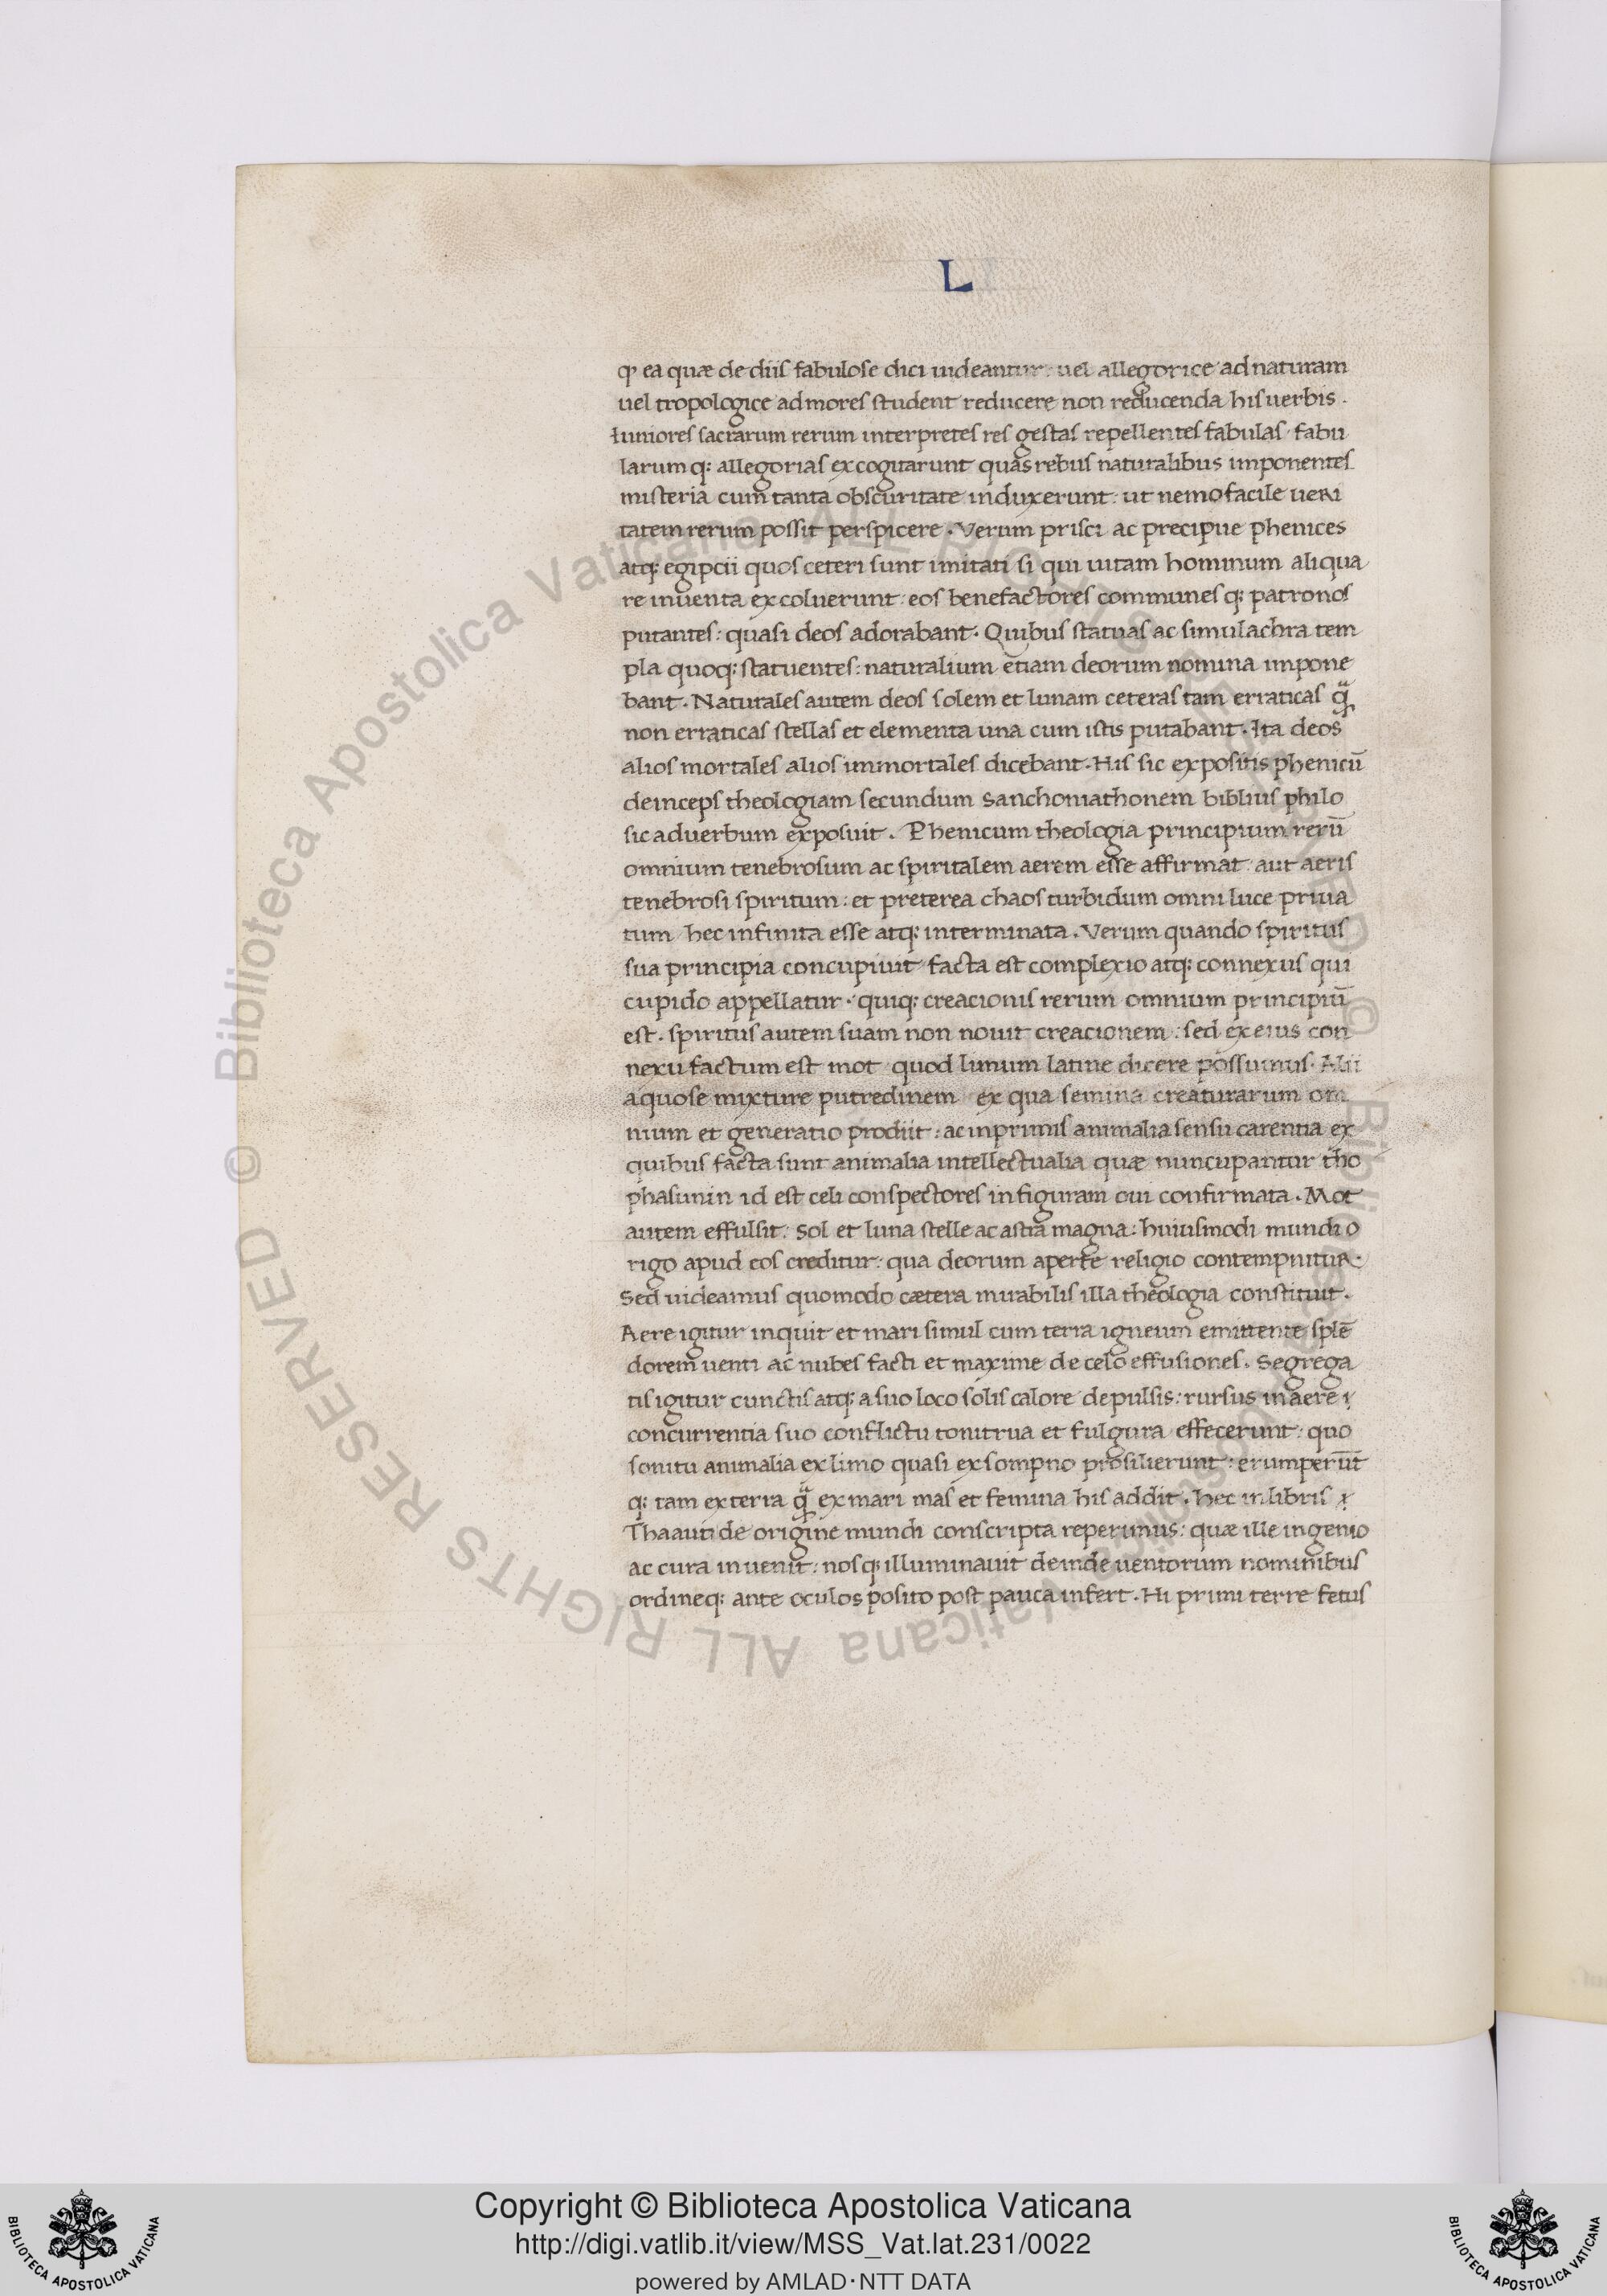 L
ꝙ ea quæ de diis fabulose dici uideantur: uel allegorice ad naturam
uel tropologice ad mores student reducere non reducenda his uerbis.
Iuniores sacrarum rerum interpretes res gestas repellentes fabulas fabu
larum q: allegorias excogitarunt quas rebus naturalibus imponentes
misteria cum tanta obscuritate induxerunt: ut nemo facile ueri
tatem rerum possit perspicere. Verum prisci ac precipue phenices
atq: egipcii quos ceteri sunt imitati si qui uitam hominum aliqua
re inuenta excoluerunt: eos benefactores communes q: patronos
putantes: quasi deos adorabant. Quibus statuas ac simulachra tem
pla quoq: statuentes: naturalium etiam deorum nomina impone
bant. Naturales autem deos solem et lunam ceteras tam erraticas ꝙ̃
non erraticas stellas et elementa una cum istis putabant. Ita deos
alios mortales alios immortales dicebant. His sic expositis phenicū
deinceps theologiam secundum sanchoniathonem biblius philo
sic ad uerbum exposuit. Phenicum theologia principium rerū
omnium tenebrosum ac spiritalem aerem esse affirmat: aut aeris
tenebrosi spiritum: et preterea chaos turbidum omni luce priua
tum hec infinita esse atq: interminata. Verum quando spiritus
sua principia concupiuit facta est complexio atq: connexus qui
cupido appellatur. quiq: creacionis rerum omnium principiū
est. spiritus autem suam non nouit creacionem: sed ex eius con
nexu factum est mot quod limum latine dicere possumus. Alii
aquose mixture putredinem ex qua semina creaturarum om
nium et generatio prodiit: ac inprimis animalia sensu carentia ex
quibus facta sunt animalia intellectualia quæ nuncupantur tho
phasimin id est celi conspectores in figuram oui confirmata. Mot
autem effulsit: sol et luna stelle ac astra magna: huiusmodi mundi o
rigo apud eos creditur: qua deorum aperte religio contempnitur.
Sed uideamus quomodo cætera mirabilis illa theologia constituit.
Aere igitur inquit et mari simul cum terra igneum emittente splē
dorem uenti ac nubes facti et maxime de celo effusiones. Segrega
tis igitur cunctis atq: a suo loco solis calore depulsis: rursus in aere
concurrentia suo conflictu tonitrua et fulgura effecerunt: quo
sonitu animalia ex limo quasi ex sompno prosilierunt: erumperūt
q: tam ex terra ꝙ̃ ex mari mas et femina his addit. hec in libris
Thaauti de origine mundi conscripta reperimus: quæ ille ingenio
ac cura inuenit: nosq: illuminauit deinde uentorum nominibus
ordineq: ante oculos posito post pauca infert. Hi primi terre fetus
© Biblioteca Apostolica Vaticana ALL RIGHTS RESERVED © Biblioteca Apostolica Vaticana ALL RIGHTS RESERVED
BIBLIOTECA APOSTOLICA VATICANA
Copyright © Biblioteca Apostolica Vaticana
http://digi.vatlib.it/view/MSS_Vat.lat.231/0022
powered by AMLAD·NTT DATA
BIBLIOTECA APOSTOLICA VATICANA